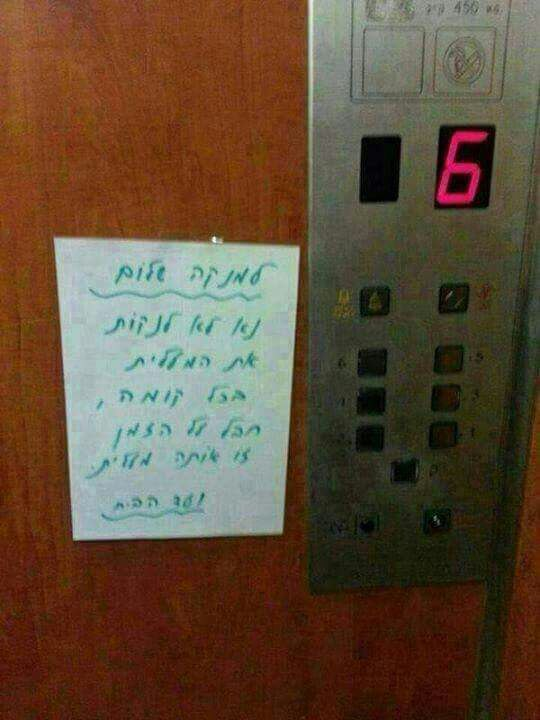 450 ק"ג
6
למנקה שלום
נא לא לנקות
את המעלית
בכל קומה,
חבל על הזמן
זו אותה מעלית
ועד הבית
6
5
3
1
0